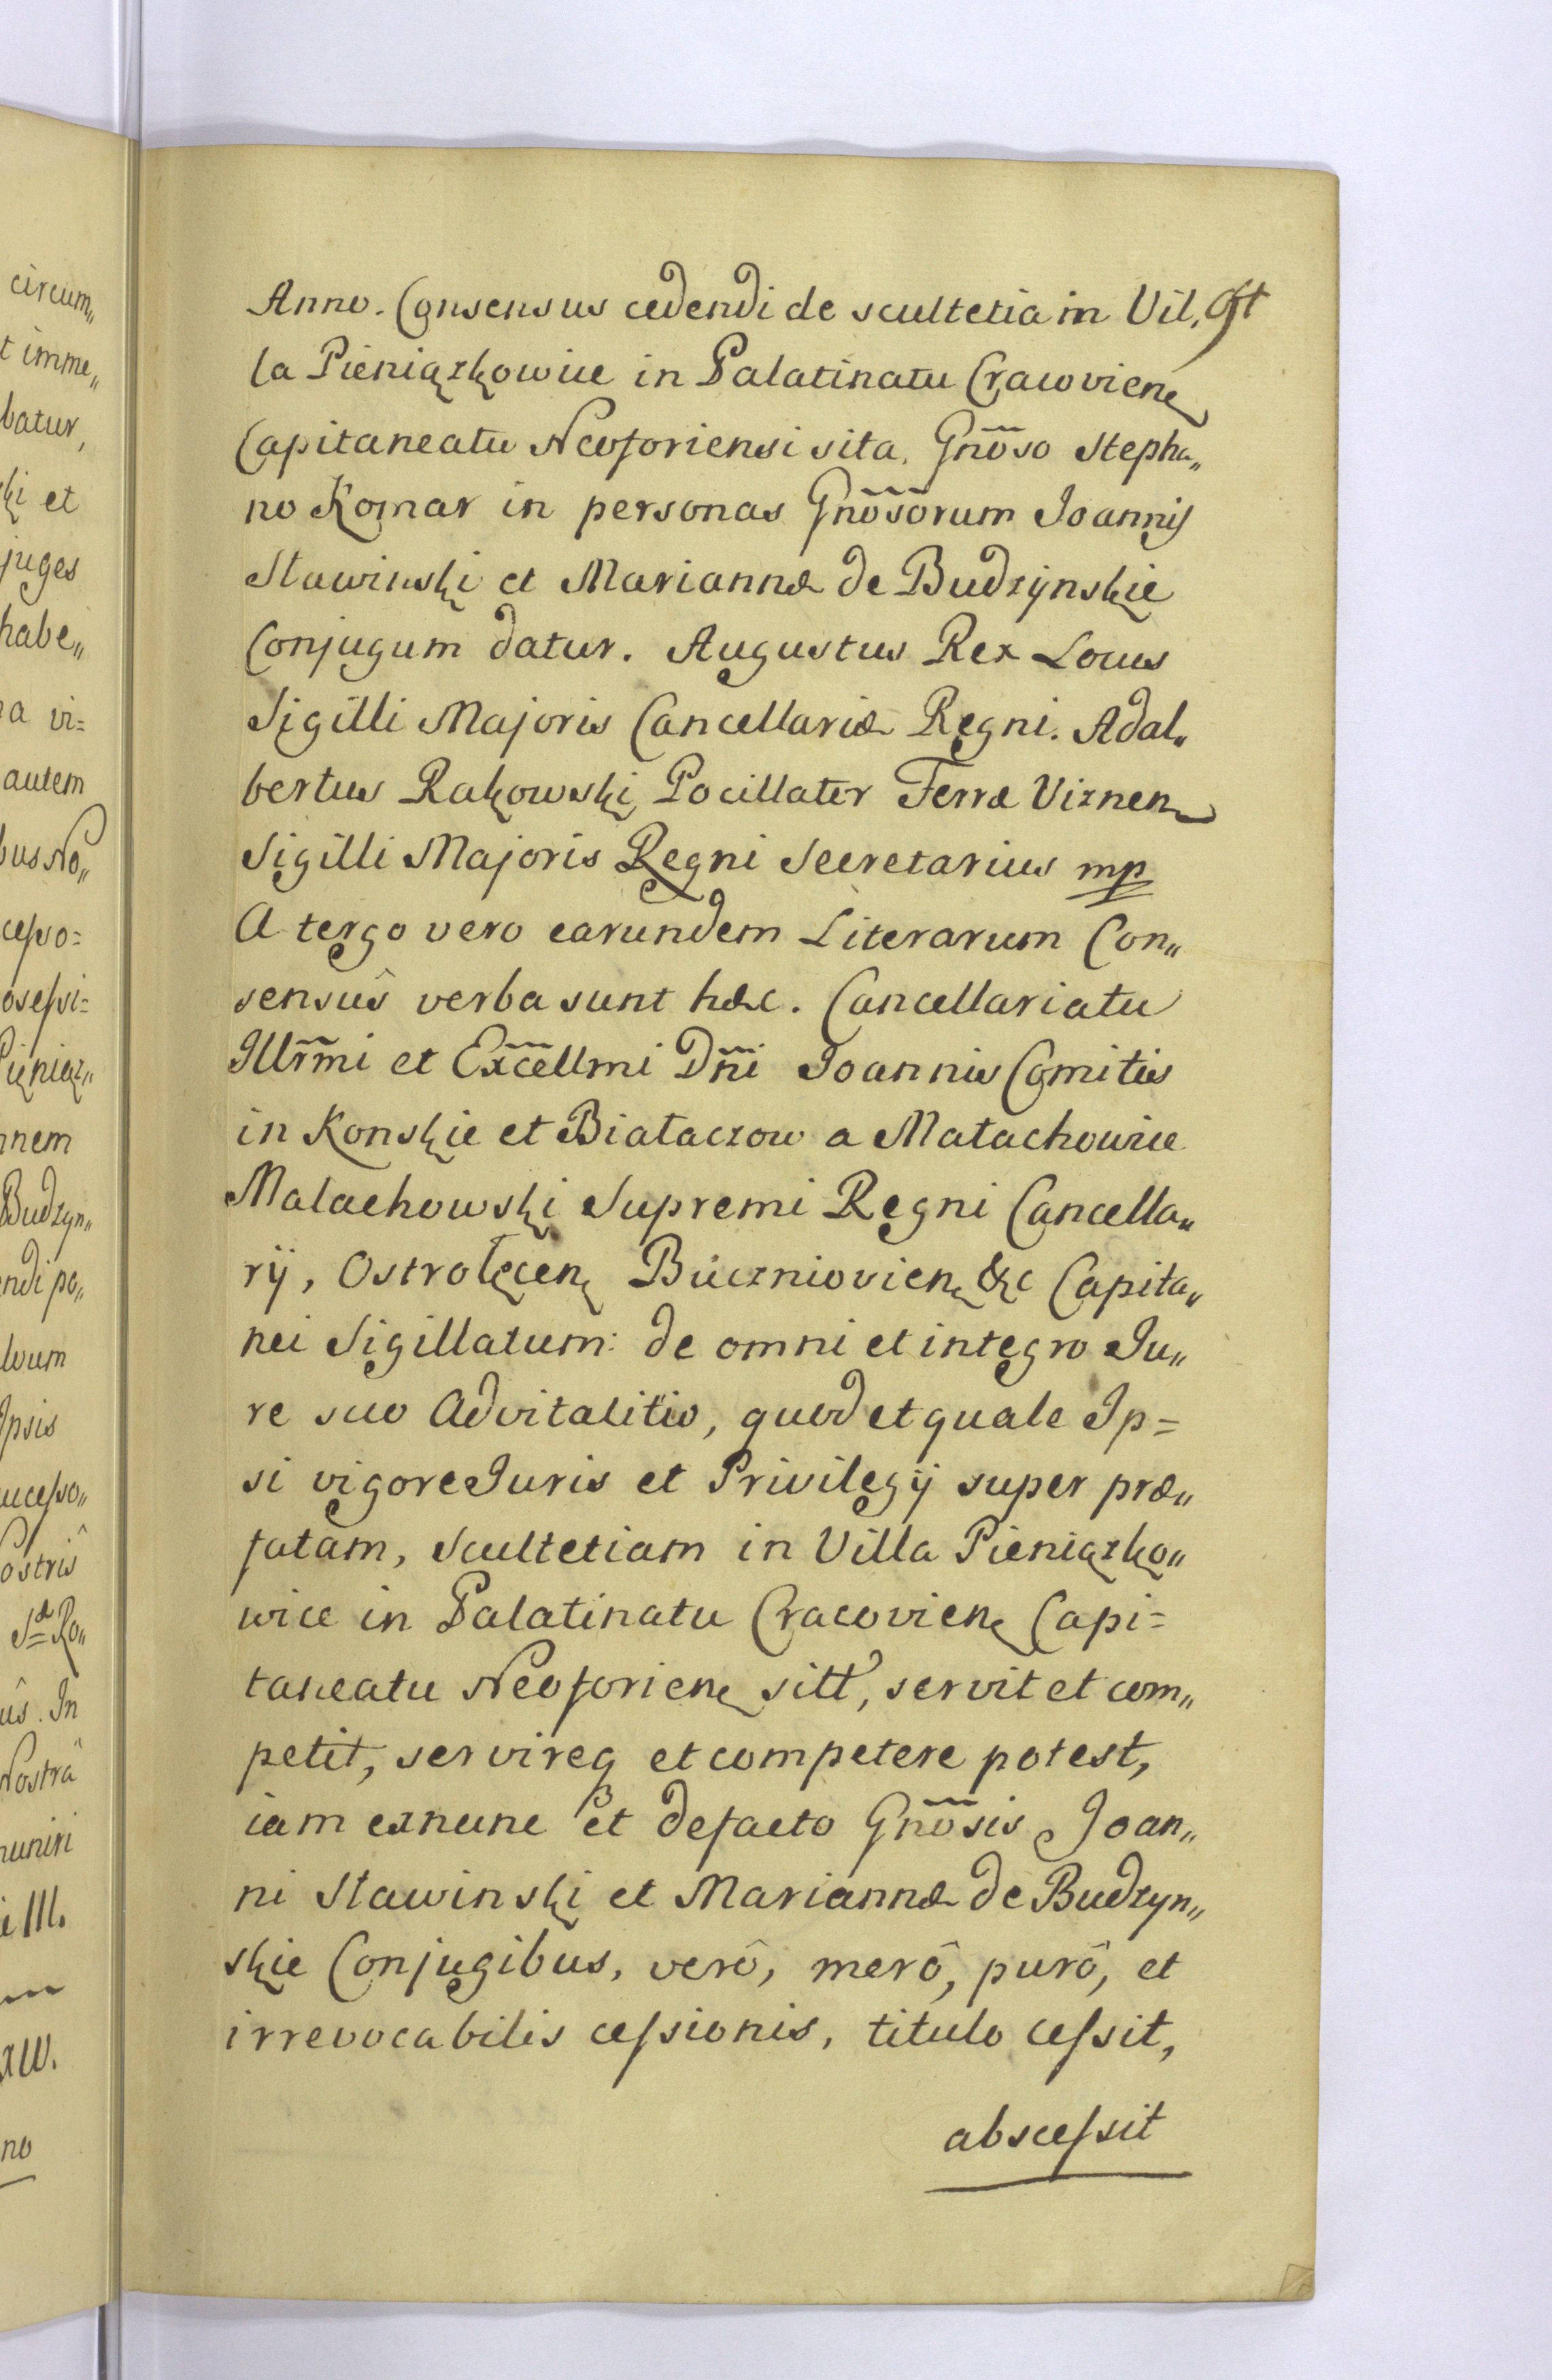 Anno. Consensus cedendi de scultetia in Vil„
la Pieniązkowice in Palatinatu Cracovien
Capitaneatu Neoforiensi sita. Gnõso Stepha„
no Komar in personas Gnõsõrum Joannis
Stawinski et Mariannæ de Budzÿnskie
Conjugum datur. Augustus Rex Locus
Sigilli Majoris Cancellariæ Regni. Adal„
bertus Rakowski Pocillator Terræ Viznen
Sigilli Majoris Regni Secretarius mp
A tergo vero earundem Literarum Con„
sensûs verba sunt hæc. Cancellariatu
Illr̃mi et Exc̃ellmi Dñi Joannis Comitis
in Konskie et Białaczow a Małachowice
Malachowski Supremi Regni Cancella„
rÿ, Ostrołęcen Buczniovien &c Capita„
nei Sigillatum: de omni et integro Ju„
re suo Advitalitio, quod et quale Ip=
si vigore Juris et Privilegÿ super præ„
fatam, Scultetiam in Villa Pieniązko„
wice in Palatinatu Cracovien Capi=
taneatu Neoforien sitt, servit et com„
petit, servireq et competere potest,
iam exnunc et defacto Gnõsis Joan„
ni Stawinski et Mariannæ de Budzyn„
skie Conjugibus, verô, merô, purô, et
irrevocabilis cessionis, titulo cessit,
abscessit
circum„
t imme„
batur,
ki et
juges
habe„
a vi=
autem
bus No„
cesso=
osessi=
Pieniąz„
nem
Budzyn„
endi po„
lvum
Ipsis
ucesso„
ostris
ûs. In
Nostrâ
muniri
III.
no